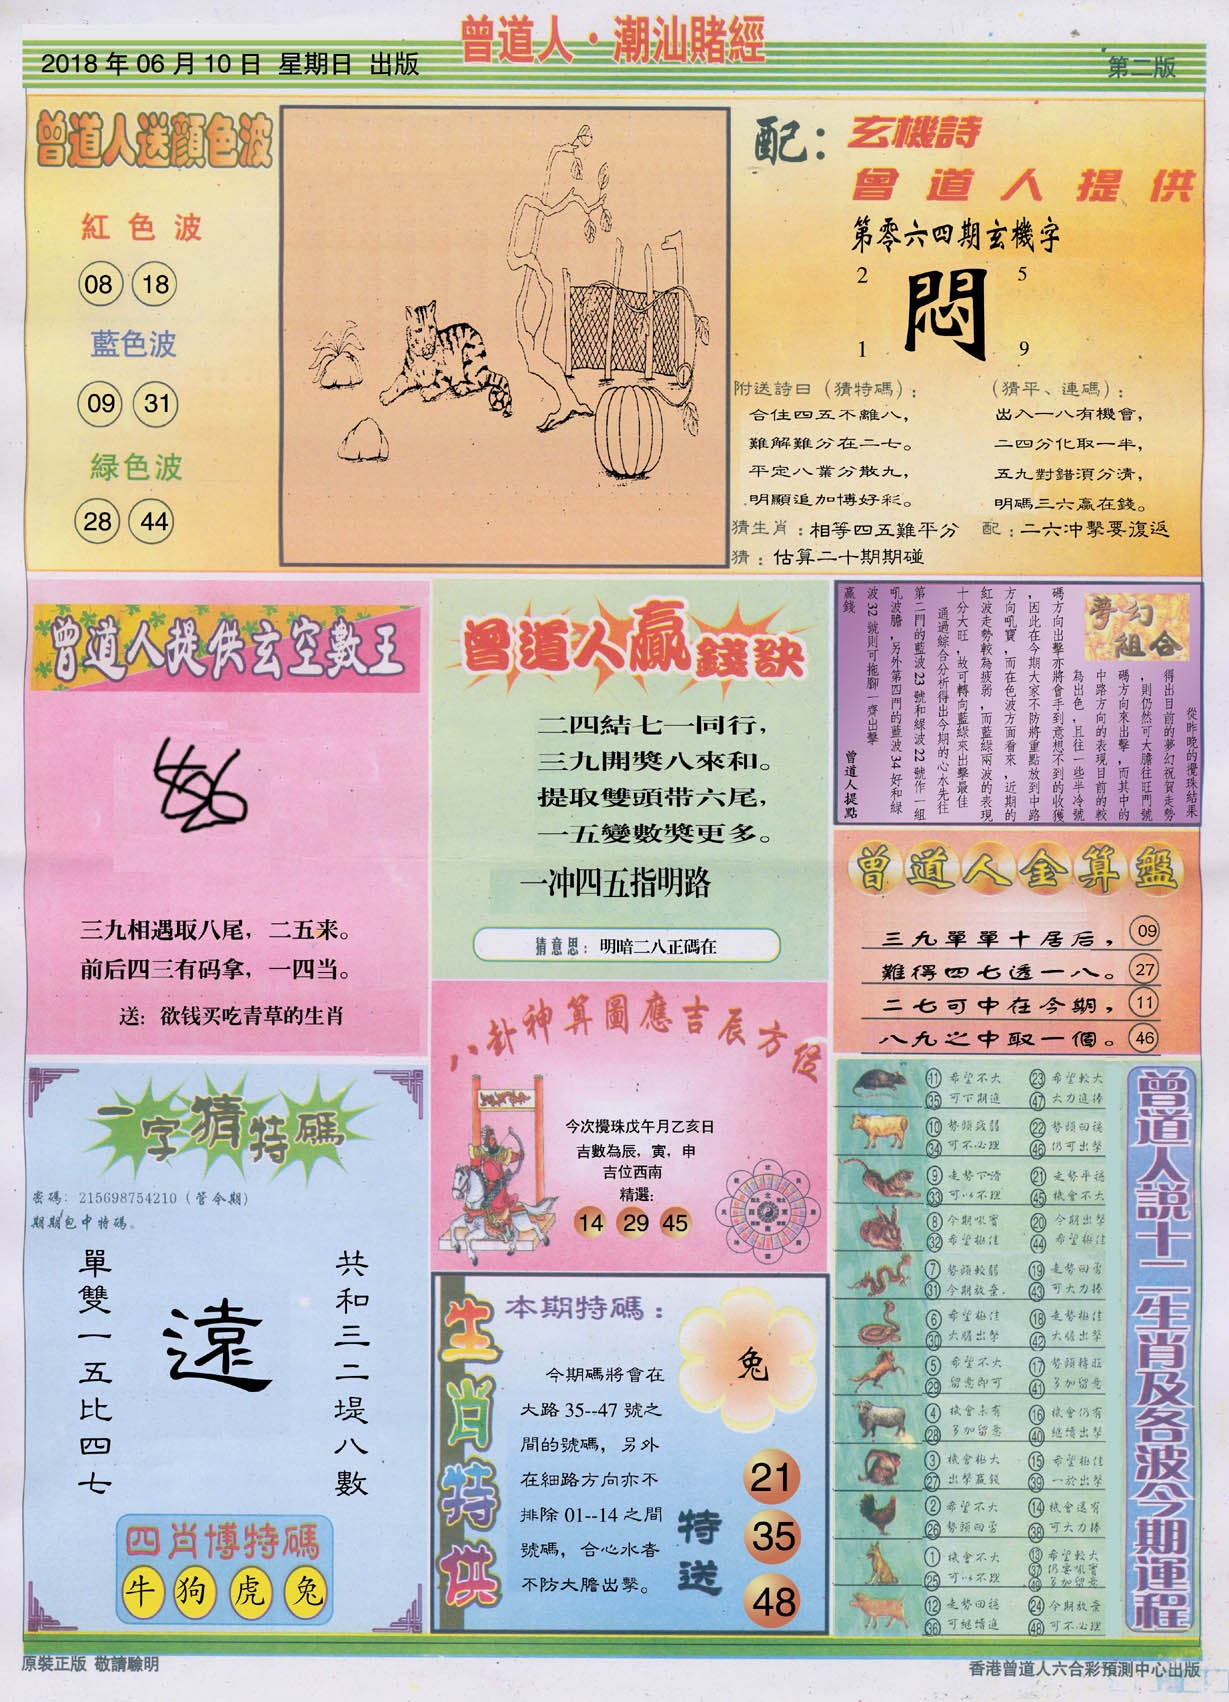 曾道人·潮汕賭經
2018 年 06 月 10 日 星期日 出版
第二版
曾道人送顏色波
紅色波
08 18
藍色波
09 31
緑色波
28 44
配：
玄機詩
曾道人提供
第零六四期玄機字
2 5
悶
1 9
附送詩曰（猜特碼）：
合住四五不離八，
難解難分在二七。
平定八業分散九，
明顯追加博好彩。
（猜平、連碼）：
出入一八有機會，
二四分化取一半，
五九對錯須分清，
明碼三六贏在錢。
猜生肖：相等四五難平分
配：二六冲擊要復返
猜：估算二十期期碰
曾道人提供玄空數王
三九相遇取八尾，二五来。
前后四三有码拿，一四当。
送：欲钱买吃青草的生肖
曾道人贏錢訣
二四結七一同行，
三九開獎八來和。
提取雙頭带六尾，
一五變數獎更多。
一冲四五指明路
猜意思：明暗二八正碼在
夢幻組合
從昨晚的攪珠結果
得出目前的夢幻祝賀走勢
，則仍然可大膽往旺門號
碼方向來出擊，而其中的
中路方向的表現目前的較
為出色，且往一些半冷號
碼方向出擊亦將會手到意想不到的收獲
，因此在今期大家不防將重點放到中路
方向吼寶，而在色波方面看來，近期的
紅波走勢較為疲弱，而藍綠兩波的表現
十分大旺，故可轉向藍綠來出擊最佳
通過綜合分析得出今期的心水先往
第二門的藍波 23 號和綠波 22 號作一組
吼波膽，另外第四門的藍波 34 好和綠
波 32 號則可拖腳一齊出擊
贏錢
曾道人提點
曾道人金算盤
三九單單十居后， 09
難得四七透一八。 27
二七可中在今期， 11
八九之中取一個。 46
八卦神算圖應吉辰方位
今次攪珠戊午月乙亥日
吉數為辰，寅，申
吉位西南
精選：
14 29 45
一字猜特碼
密碼：215698754210（管今期）
期期包中特碼。
單雙一五比四七
遠
共和三二堤八數
四肖博特碼
牛 狗 虎 兔
生肖特供
本期特碼：
兔
今期碼將會在
大路 35--47 號之
間的號碼，另外
在細路方向亦不
排除 01--14 之間
號碼，合心水者
不防大膽出擊。
特送
21
35
48
曾道人説十二生肖及各波今期運程
11 希望不大 23 希望較大
35 可下期追 47 大力追捧
10 勢頭疲弱 22 勢頭回穩
34 可不必理 46 仍可出擊
9 走勢下滑 21 走勢平穩
33 可以不理 45 機會不大
8 今期吼寶 20 今期出擊
32 希望極佳 44 希望極佳
7 勢頭較弱 19 走勢回勇
31 今期放棄 43 可大力捧
6 希望極佳 18 走勢極佳
30 大膽出擊 42 大膽出擊
5 希望不大 17 勢頭轉旺
29 留意即可 41 多加留意
4 機會未有 16 機會仍有
28 多加留意 40 繼續出擊
3 機會極大 15 希望極佳
27 出擊贏錢 39 一於出擊
2 希望不大 14 機會還有
26 勢頭回勇 38 可大力捧
1 機會不大 13 希望較大
25 可以不理 37 仍要吼寶
49 多加留意
12 走勢回穩 24 今期放棄
36 可繼續追 48 可不必理
原裝正版 敬請驗明
香港曾道人六合彩預測中心出版